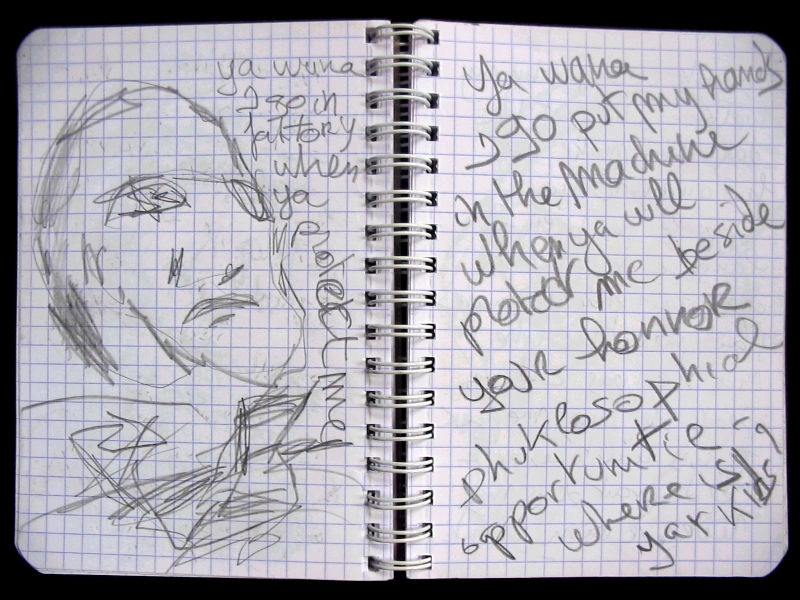 ya wana
I go in
fattory
when
ya
protect me
ya wana
I go put my hands
in the machine
when ya will
protect me beside
your horror
phuklosophical
opportunitie
where is
yar kids